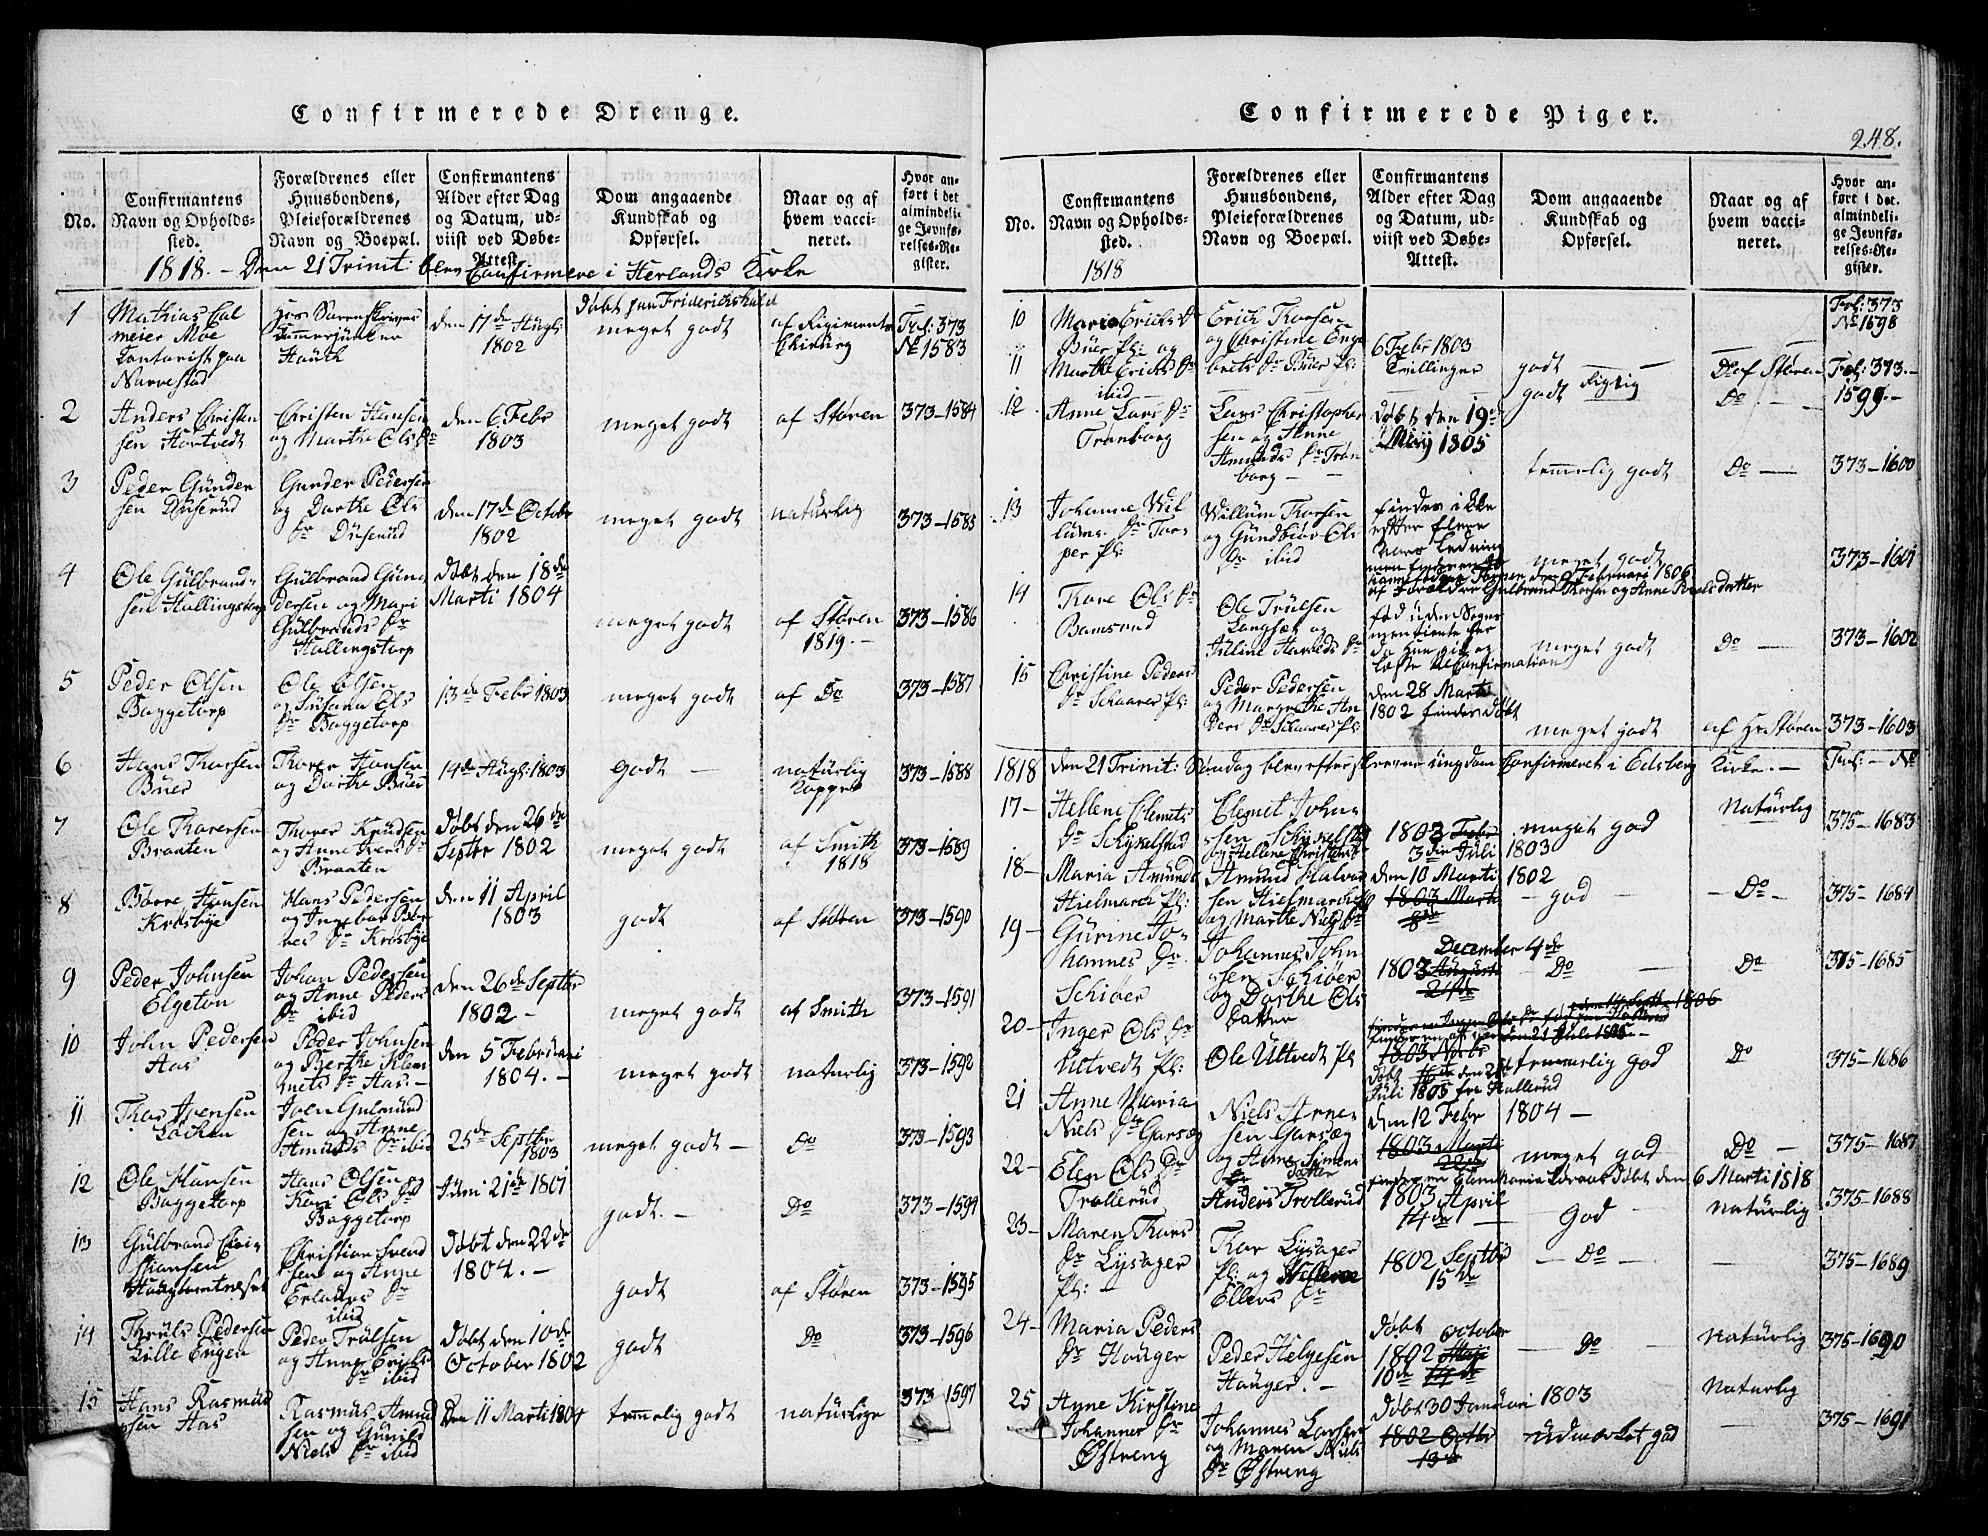 Confirmerede Drenge.
No.
Confirmantens
Navn og Opholds-
sted.
Forældrenes eller
Huusbondens,
Pleieforældrenes
Navn og Boepæl.
Confirmantens
Alder efter Dag
og Datum, ud-
viist ved Døbe-
Attest.
Dom angaaende
Kundskab og
Opførsel.
Naar og af
hvem vacci-
neret.
Hvor an-
ført i det
almindeli-
ge Jevnfø-
relses-Re-
gister.
1818. - Den 21 Trinit: blev Confirmere i Herlands Kirke
1
Mathias Cal
meier Moe
Contorist paa
Narvestad
hos Sorenskriver
Kammerjunker
Hauth
den 17de Augl:
1802
Døbt paa Friderichshald
meget godt
af Regiments
Chirurg
Fol: 373
No 1583
2
Anders Christen
sen Hortvedt
Christen Hansen
og Marthe Ols Dr
den 6 Febr
1803
meget godt
af Støren
373-1584
3
Peder Gunder
sen Duserud
Gunder Pedersen
og Dorthe Ols
Dr Duserud
den 17de Octobr
1802
meget godt
naturlig
373-1585
4
Ole Gulbrand-
sen Hallingstorp
Gulbrand Gun
dersen og Mari
Gulbrands Dr
Hallingstorp
Døbt den 18de
Marti 1804
meget godt
af Støren
1819.-
373-1586
5
Peder Olsen
Baggetorp
Ole Olsen
og Susana Ols
Dr Baggetorp
13de Febr 1803
meget godt
af Do
373-1587
6
Hans Thorsen
Buer
Thorer Hansen
og Dorthe Buer
14de Augl: 1803
godt -
naturlig
Kopper
373-1588
7
Ole Thorersen
Braaten
Thorer Knudsen
og Anne Ivers Dr
Braaten
Døbt den 26de
Septbr 1802
meget godt
af Smith
1818
373-1589
8
Børre Hansen
Krosbye
Hans Pedersen
og Ingebor Bør
res Dr Krosbye
den 11 April
1803
godt
af Støren
373-1590
9
Peder Johnsen
Elgeton
Johan Pedersen
og Anne Peders
Dr ibid
den 26de Septbr
1802 -
meget godt
af Smith
373-1591
10
John Pedersen
Aas
Peder Johnsen
og Berthe Klem
mets Dr Aas.-
den 5 Februari
1804. -
meget godt
naturlig
373-1592
11
Thor Joensen
Løcken
Joen Gulmund
sen og Anne
Amunds Dr ibid
25de Septbr
1803
meget godt -
Do
373-1593
12
Ole Hansen
Baggetorp
Hans Olsen
Kari Ols Dr
Baggetorp
Juni 21de 1801
godt. -
Do
373-1594
13
Gulbrand Chri-
stiansen
Christian Svend
sen og Anne
Dr
ibid
Døbt den 22de
1804. -
godt
af Støren
373-1595
14
Thruls Pedersen
Lille Engen
Peder Trulsen
og Anne Erichs
Dr ibid
Døbt den 10de
October 1802
godt
Do
373-1596
15
Hans Rasmud
sen Aas
Rasmus Amund
sen og Gunild
Niels Dr ibid
Den 11 Marti 1804
temmelig godt
naturlige
373-1597
Confirmerede Piger.
248.
No.
Confirmantens
Navn og Opholds-
sted.
Forældrenes eller
Huusbondens,
Pleieforældrenes
Navn og Boepæl.
Confirmantens
Alder efter Dag
og Datum, ud-
viist ved Døbe-
Attest.
Dom angaaende
Kundskab og
Opførsel.
Naar og af
hvem vacci-
neret.
Hvor an-
ført i det
almindeli-
ge Jevnfø-
relses-Re-
gister.
1818
10
Maria Erichs Dr
Buer Pl: og
11
Marthe Erichs Dr
ibid
Erich Thorsen
og Christine Enge
brets Dr Buer Pl:
6 Febr 1803
Tvillinger
godt
Rigtig
Do af Støren
Fol: 373
No 1598
Fol: 373.-
1599.-
12
Anne Lars Dr
Trønborg
Lars Christopher
sen og Anne
Amunds Dr Trøn
borg -
Døbt den 19de
Maij 1805
godt
Do
temmelig godt
Do -
373-1600
13
Johanne Wil
lums Dr Tor
per Pl:
Willum Thorsen
og Gundbior Ols
Dr ibid
findes ikke
efter flere
Aars Ledning
meget godt
373-1601
af Forældre Gulbrand Thorsen og Anne Povelsdatter
14
Thore Ols Dr
Bamsrud
Ole Trulsen
Langsæt og
Helene Harolds Dr
fød uden Sogne
men tiente her
da hun gik og
læste til Confirmation
meget godt
Do -
373-1602
15
Christine Peders
Dr Schaarer Pl:
Peder Pedersen
og Margrethe An
ders Dr Schaarer Pl:
den 28 Marti
1802 findes døbt
meget godt
af Hr Støren
373-1603
1818 den 21 Trinit: Søndag blev efterskrevne ungdom Confirmeret i Edsberg Kirke. - Fol: - No
17-
Hellene Clemets
Dr Schyelstad
Clemet John-
sen Schyelstad
og Hellene Christens Dr
1803 Febr
3die Juli 1803
meget god
Naturlig
375-1683
18-
Maria Amunds
Hielmarch Pl:
Amund Halvor
sen Hielmarch Pl
og Marthe Niels Dr
den 10 Marti 1802
1803 Marti
8de
- god -
- Do -
375-1684
19-
Gurine Jo-
hannes Dr
Schiøer
Johannes John
sen Schiøer
og Dorthe Ols
datter
December 4de
1803 Augusti
21de
- Do -
Do
375-1685
20-
Inger Ols Dr
Ultvedt Pl:
Ole Ultvedt Pl
1803 Novbr
Døbt den 21de
Juli 1805 fra Hallerud
temmelig god
Do
375-1686
21
Anne Maria
Niels Dr Garsæg
Niels Arne-
sen Garsæg
og Anne Simens
datter
den 12 Febr 1804 -
1803 Marti
22de
meget god
Do -
375-1687
22-
Elen Ols Dr
Trollerud
Anders Trollerud
Døbt den 6 Marti 1818
1803 April
14de
- God -
Naturlig
375-1688
23-
Maren Thors
Dr Lysager
Pl: -
Thor Lysager
Pl: og
Ellers Dr
1802 Septbr
15de
- Do -
-
375-1689
24-
Maria Peders
Dr Hauger
Peder Helgesen
Hauger. -
Døbt October
1802 Maji
10de 14de
- Do -
Naturlig
375-1690
25
Anne Kirstine
Johannes Dr
Østreng
Johannes Larsen
og Maren Niels
Dr Østreng
Døbt 30 Januari 1803
1802 Octbr
13de
udmærket god
Naturlig
375-1691